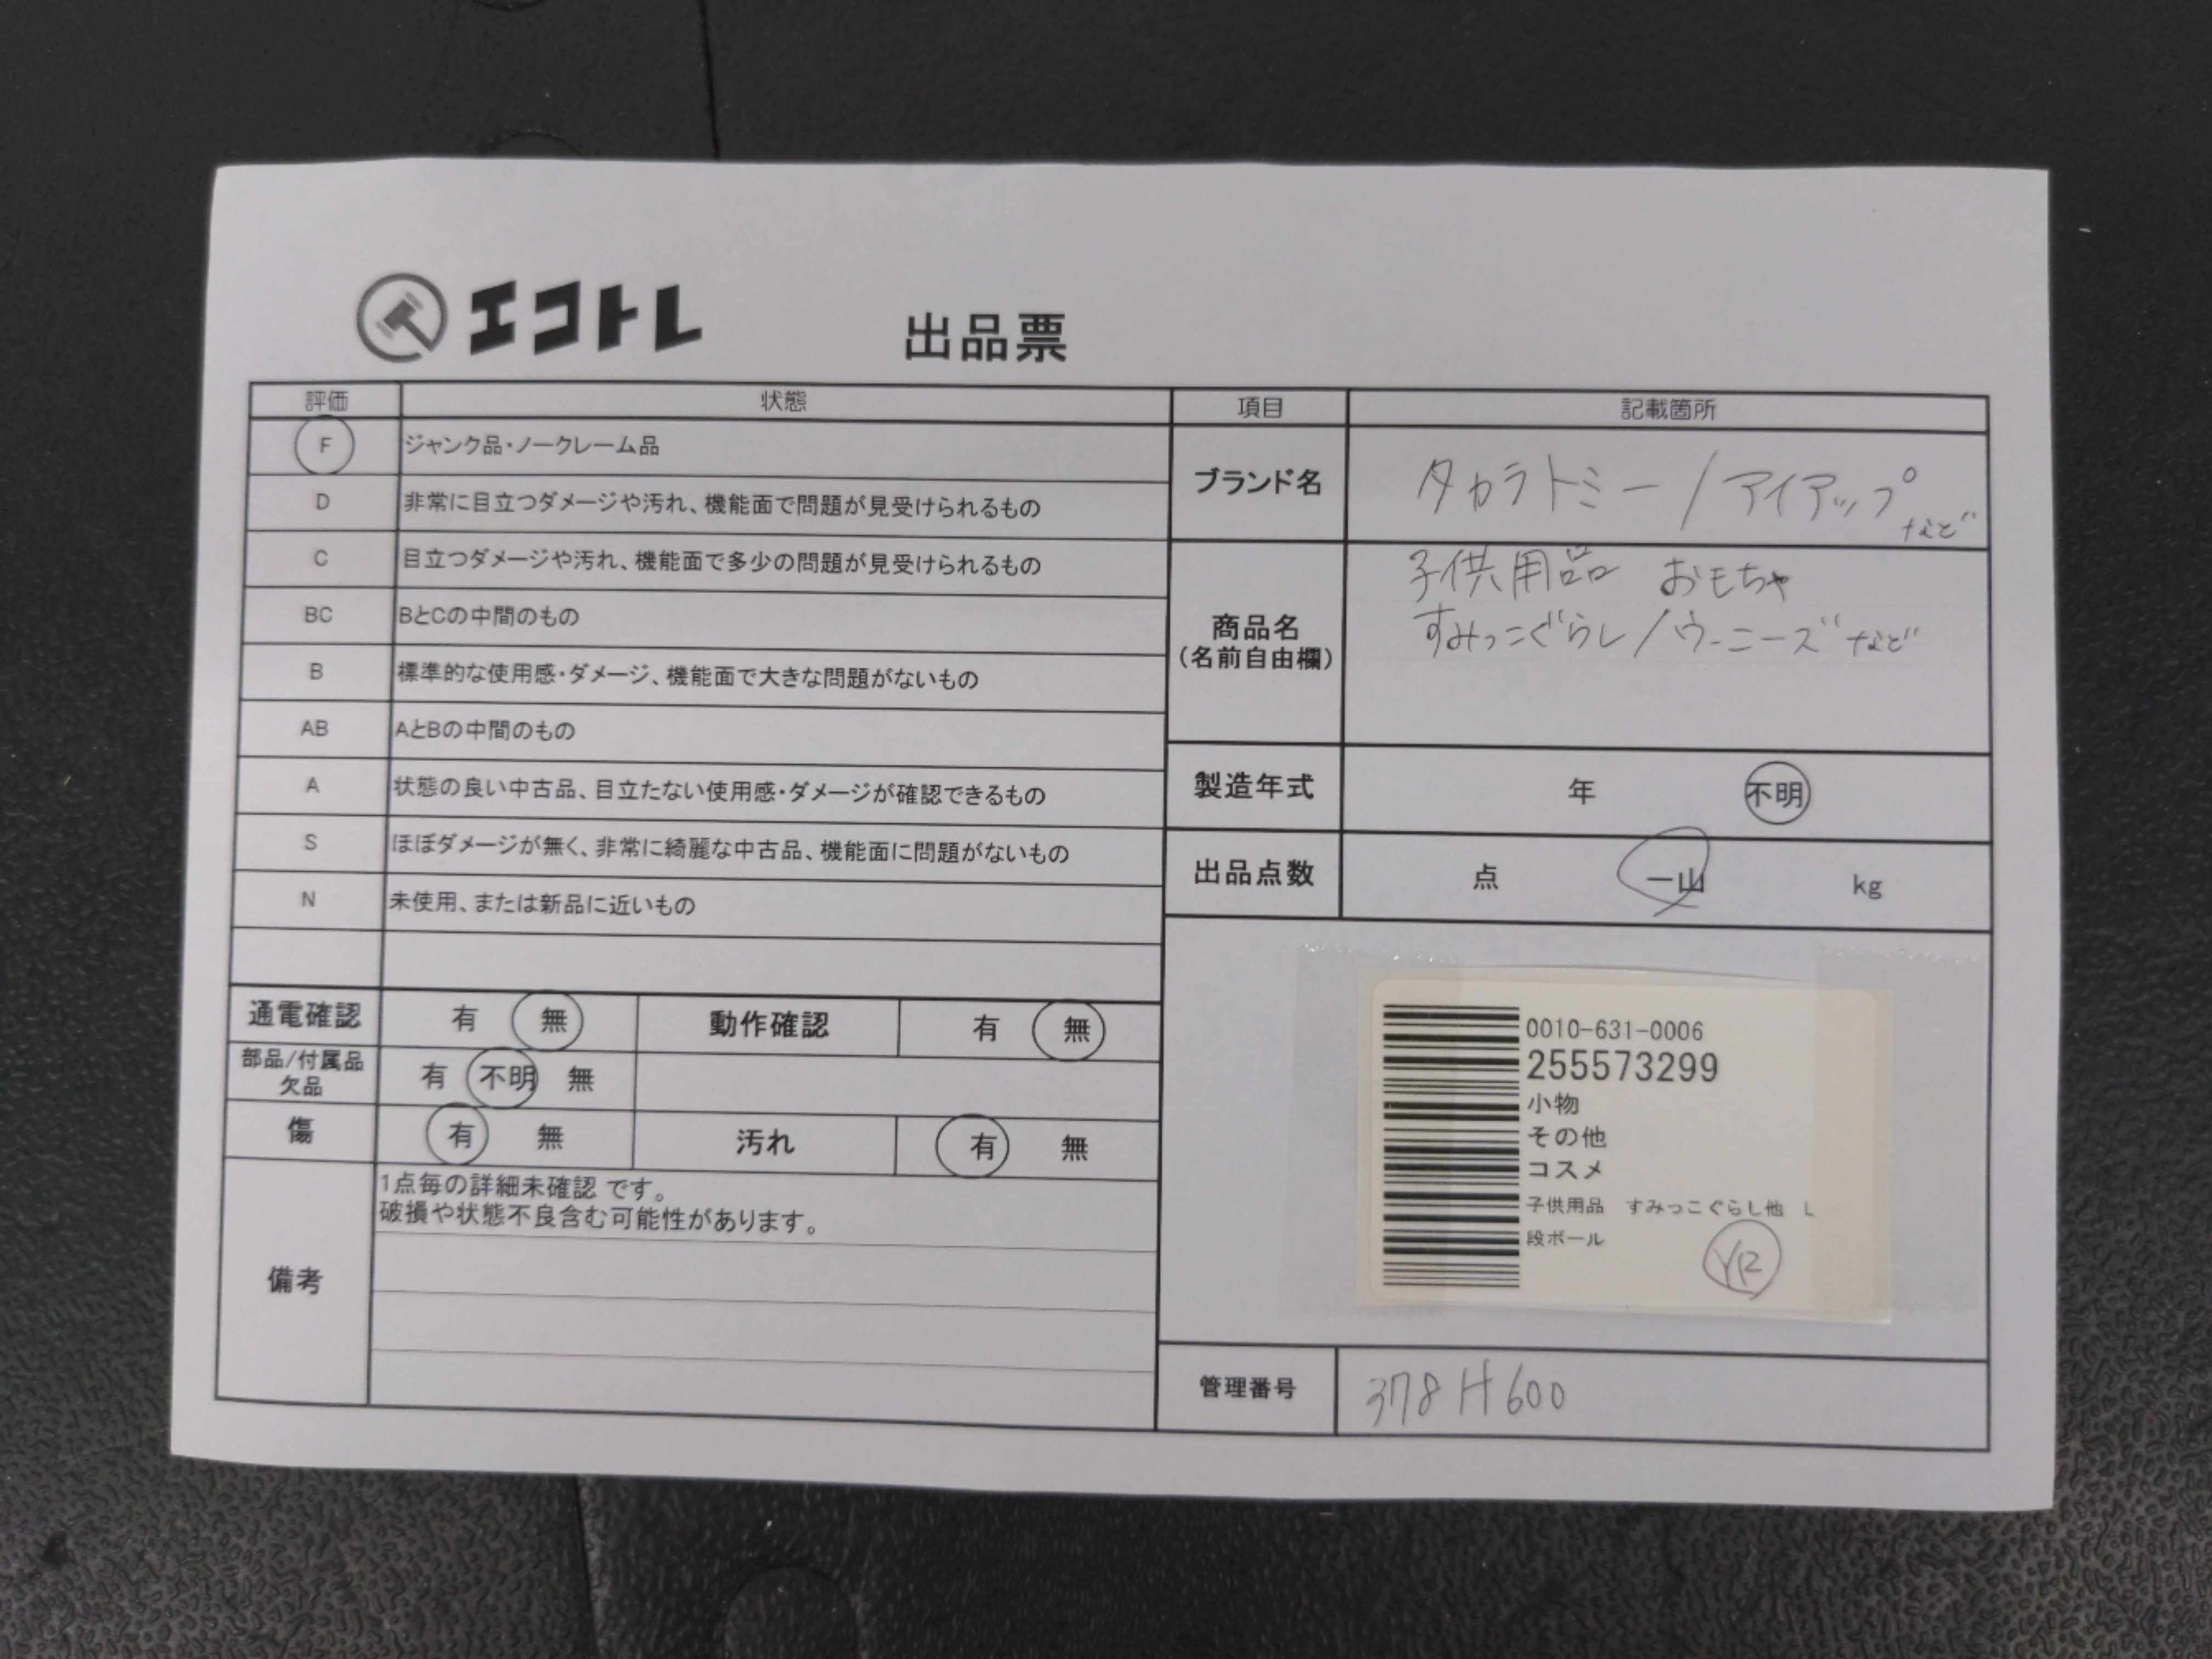 エコトレ
出品票
評価 状態
F ジャンク品・ノークレーム品
D 非常に目立つダメージや汚れ、機能面で問題が見受けられるもの
C 目立つダメージや汚れ、機能面で多少の問題が見受けられるもの
BC BとCの中間のもの
B 標準的な使用感・ダメージ、機能面で大きな問題がないもの
AB AとBの中間のもの
A 状態の良い中古品、目立たない使用感・ダメージが確認できるもの
S ほぼダメージが無く、非常に綺麗な中古品、機能面に問題がないもの
N 未使用、または新品に近いもの
通電確認 有 無 動作確認 有 無
部品/付属品
欠品 有 不明 無
傷 有 無 汚れ 有 無
備考
1点毎の詳細未確認 です。
破損や状態不良含む可能性があります。
項目 記載箇所
ブランド名 タカラトミー/アイアップ
など
商品名
(名前自由欄)
子供用品 おもちゃ
すみっこぐらし/ウーニーズなど
製造年式 年 不明
出品点数 点 一山 kg
0010-631-0006
255573299
小物
その他
コスメ
子供用品 すみっこぐらし他 L
段ボール
YR
管理番号 378H600